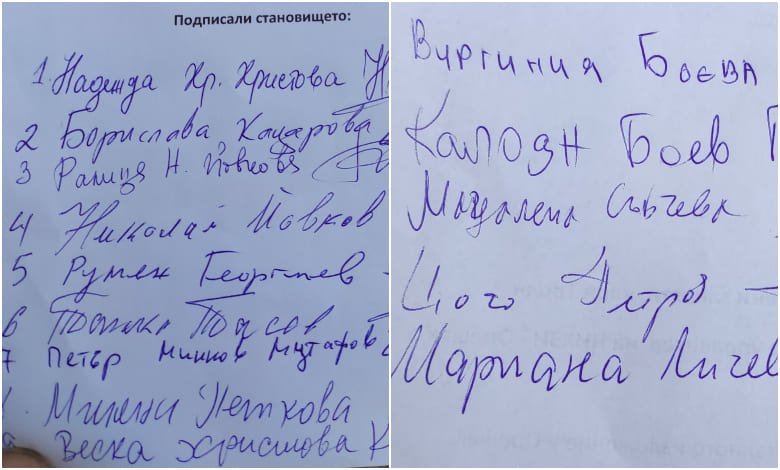 Подписали становището:
1. Надежда Хр. Христова
2 Борислава Кацарова
3 Ралица Н. Йовкова
4 Николай Йовков
5 Румен Георгиев
6
7 Петър Минков Мутафов
Милена Петкова
Веска Христова К
Виргиния Боева
Калоян Боев
Магдалена
Цого Петров
Мариана Личев